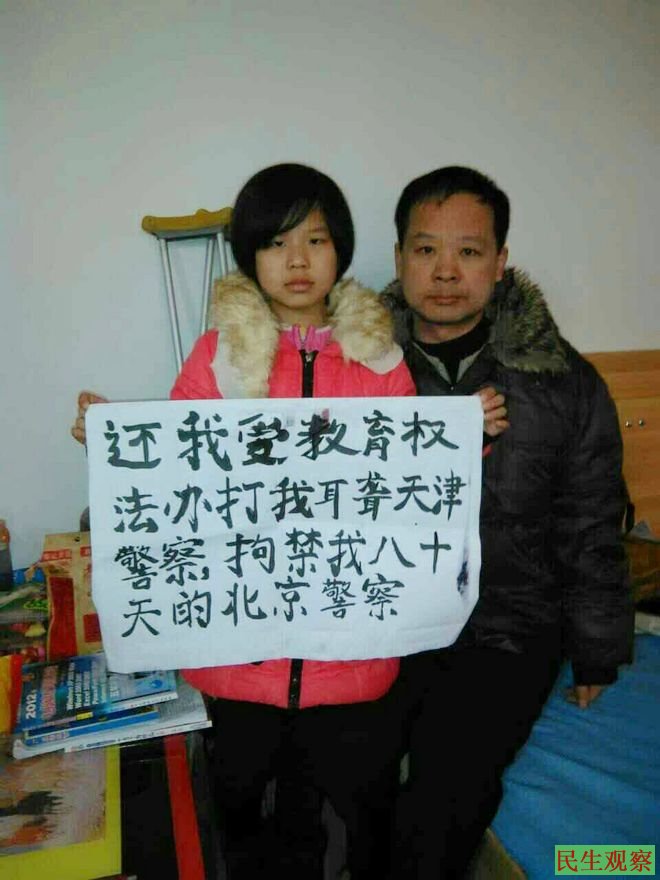 还我受教育权
法办打我耳聋天津
警察,拘禁我八十
天的北京警察
2012
民生观察